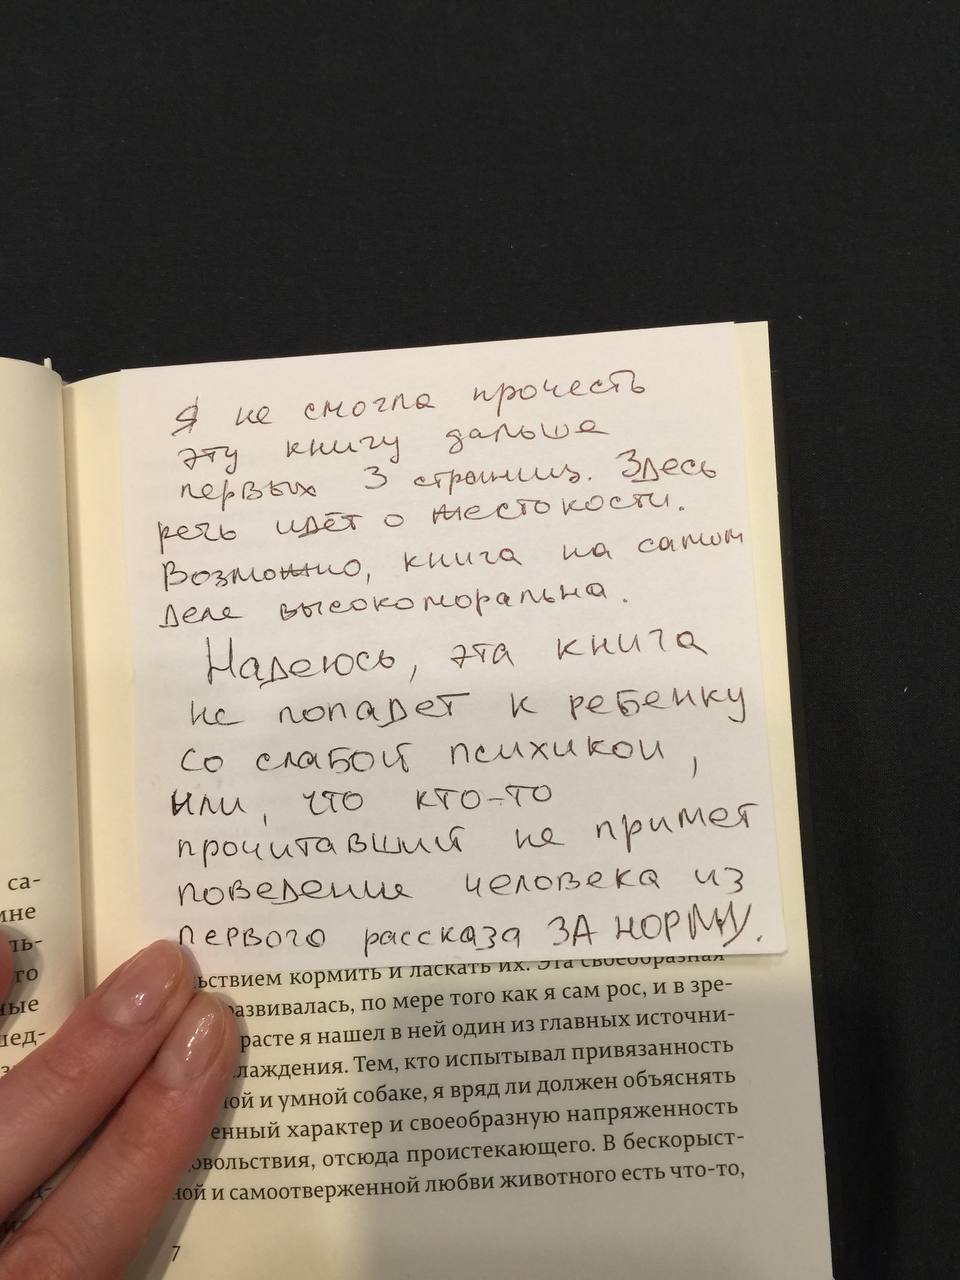 Я не смогла прочесть
эту книгу дальше
первых 3 страниц. Здесь
речь идёт о жестокости.
Возможно, книга на самом
деле высокоморальна.
Надеюсь, эта книга
не попадет к ребенку
со слабой психикой,
или, что кто-то
прочитавший не примет
поведение человека из
первого рассказа ЗА НОРМУ.
са-
мне
ль-
го
ные
шед-
льствием кормить и ласкать их. Эта своеобразная
развивалась, по мере того как я сам рос, и в зре-
расте я нашел в ней один из главных источни-
лаждения. Тем, кто испытывал привязанность
ной и умной собаке, я вряд ли должен объяснять
енный характер и своеобразную напряженность
довольствия, отсюда проистекающего. В бескорыст-
ной и самоотверженной любви животного есть что-то,
7